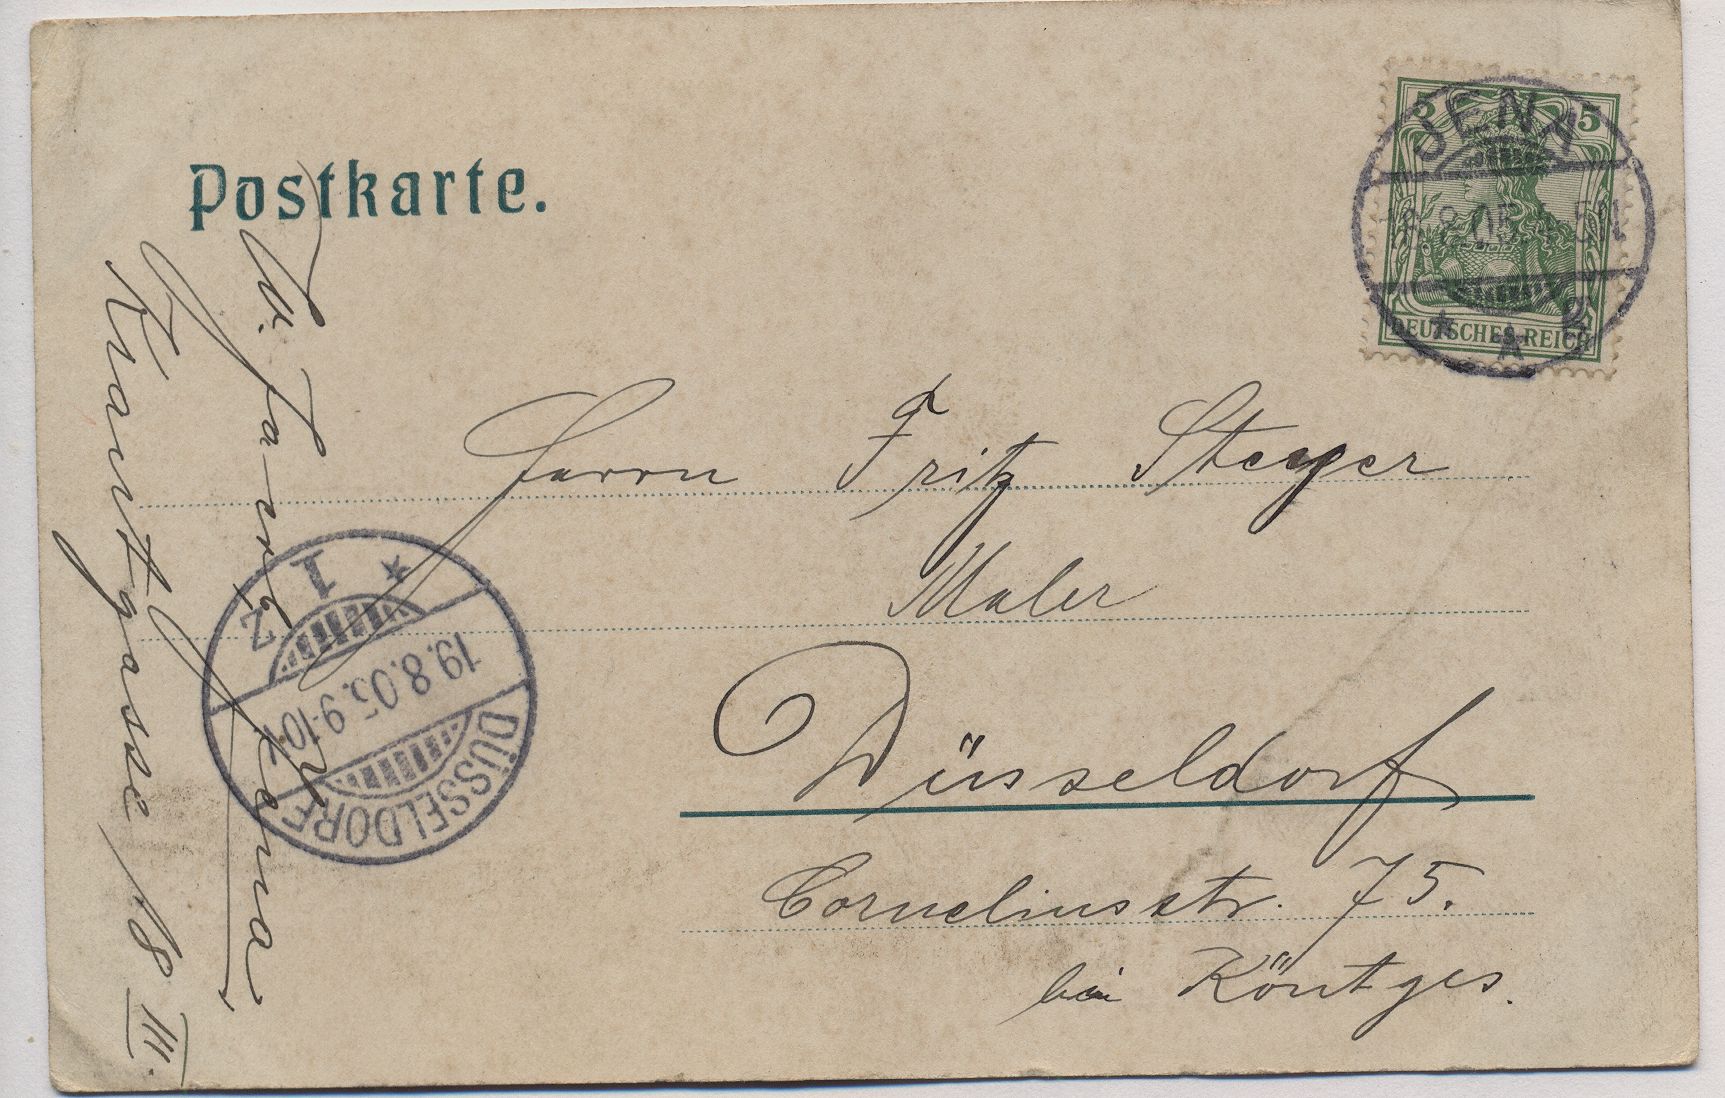 Postkarte.
5 5
DEUTSCHES REICH
JENA
18.8.05. 4-5N.
* A
Herrn Fritz Steyer
Maler
Düsseldorf
Corneliusstr. 75.
bei Köntges.
Jena
Krautgasse 18 III.
DÜSSELDORF
19.8.05. 9-10V.
* 1 z